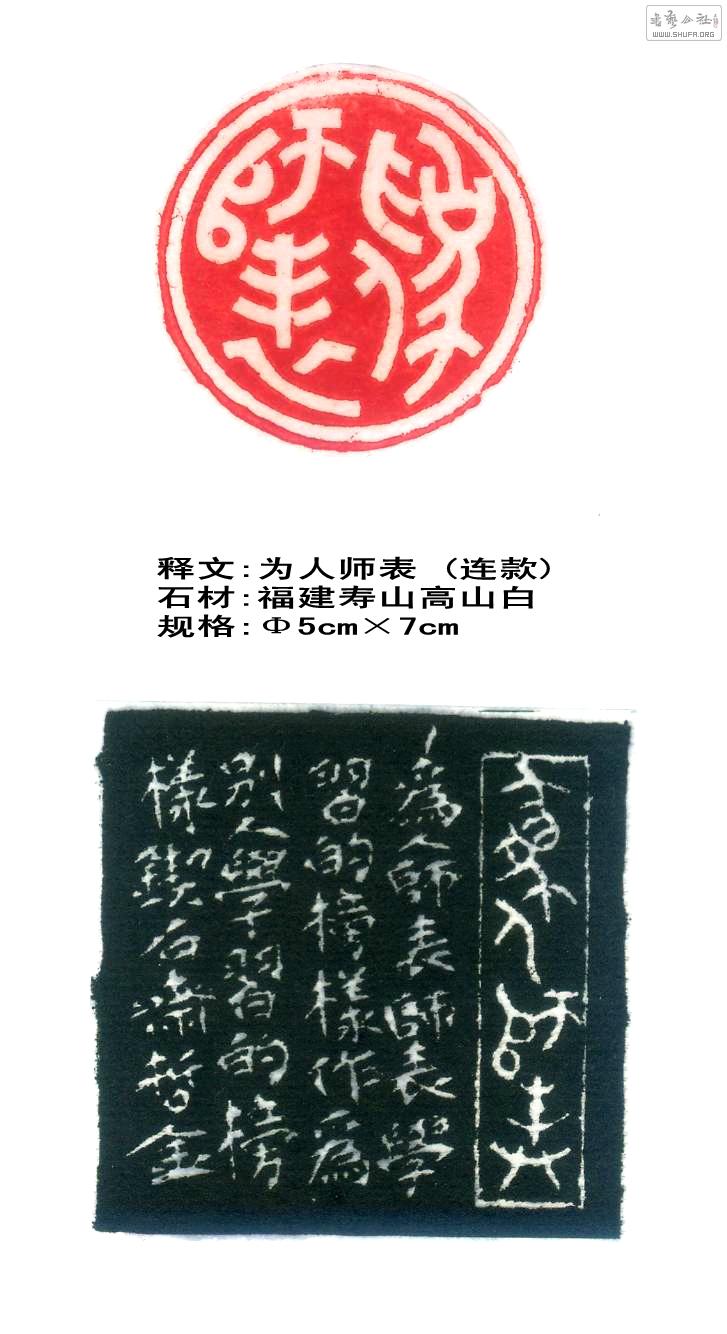 书艺公社
WWW.SHUFA.ORG
为人师表
释文:为人师表 (连款)
石材:福建寿山高山白
规格:Φ5cm×7cm
為人師表
為人師表師表學
習的榜樣作為
別人學習的榜
樣鍥石斋哲金